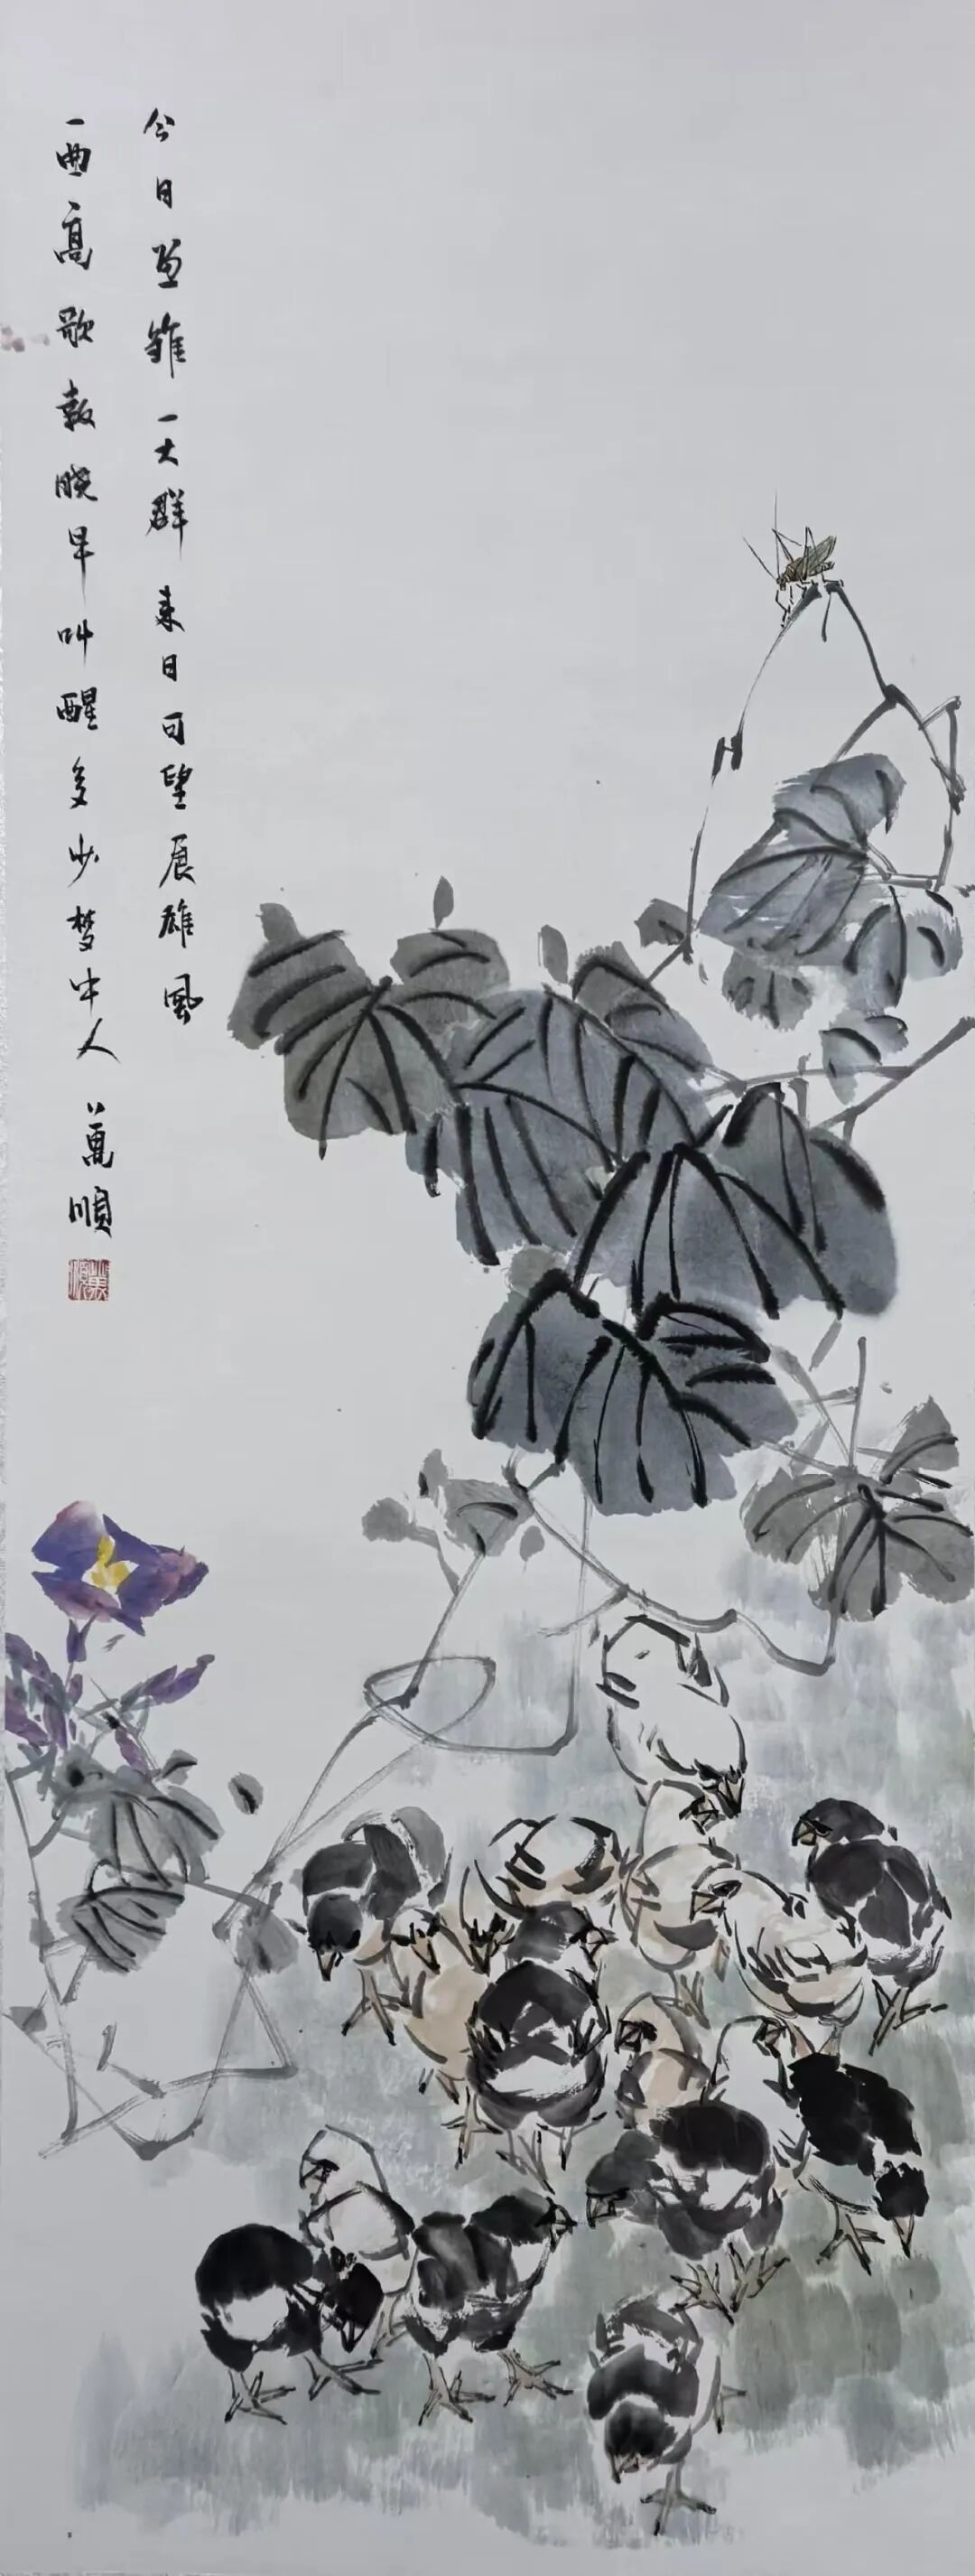 今日 雏一大群来日可望展雄風
一曲高歌報晓早叫醒多少梦中人
萬順